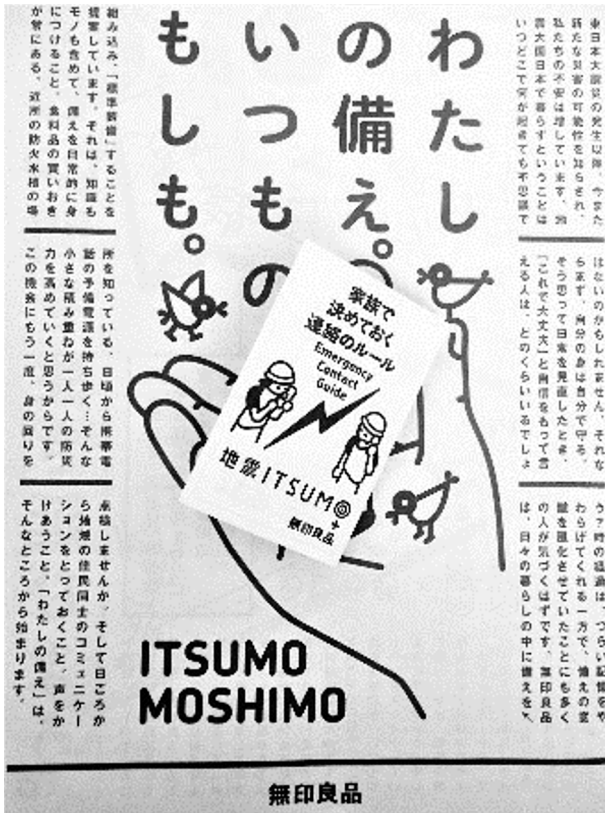 わたし
の備え。
いつもの
もしも。
東日本大震災の発生以降、今また
新たな災害の可能性を知らされ、
私たちの不安は増しています。地
震大国日本で暮らすということは
いつどこで何が起きても不思議で
はないのかもしれません。それな
らまず、自分の身は自分で守る。
そう思って日常を見直したとき、
「これで大丈夫」と自信をもって言
える人は、どのくらいいるでしょ
う?時の経過は、つらい記憶をや
わらげてくれる一方で、備えの意
識を風化させていたことにも多く
の人が気づくはずです。無印良品
は、日々の暮らしの中に備えを
組み込み、「標準装備」することを
提案しています。それは、知識も
モノも含めて、備えを日常的に身
につけること。食料品の買いおき
が常にある。近所の防火水槽の場
所を知っている。日頃から携帯電
話の予備電源を持ち歩く…そんな
小さな積み重ねが一人一人の防災
力を高めていくと思うからです。
この機会にもう一度、身の回りを
点検しませんか。そして日ごろか
ら地域の住民同士のコミュニケー
ションをとっておくこと、声をか
けあうこと。「わたしの備え」は、
そんなところから始まります。
家族で
決めておく
連絡のルール
Emergency
Contact
Guide
地震ITSUMO
+
無印良品
ITSUMO
MOSHIMO
無印良品